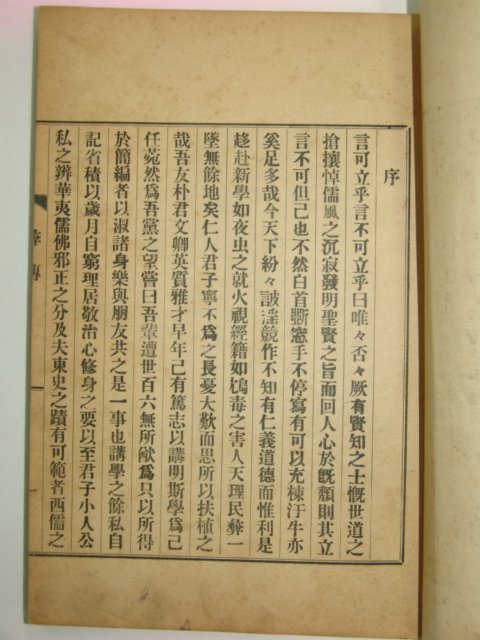 序
言可立乎言不可立乎曰唯々否々厥有賢知之士慨世道之
搶攘悼儒風之沉寂發明聖賢之旨而回人心於旣頹則其立
言不可但已也不然白首鄹窓手不停寫有可以充棟汗牛亦
奚足多哉今天下紛々詖淫競作不知有仁義道德而惟利是
趍赴新學如夜虫之就火視經籍如鴆毒之害人天理民彝一
墜無餘地矣仁人君子寧不爲之長憂大歎而思所以扶植之
哉吾友朴君文卿英質雅才早年已有篤志以講明斯學爲己
任菀然爲吾黨之望嘗曰吾輩遭世百六無所猷爲只以所得
於簡編者以淑諸身樂與朋友共之是一事也講學之餘私自
記省積以歲月自窮理居敬治心修身之要以至君子小人公
私之辨華夷儒佛邪正之分及夫東史之蹟有可範者西儒之